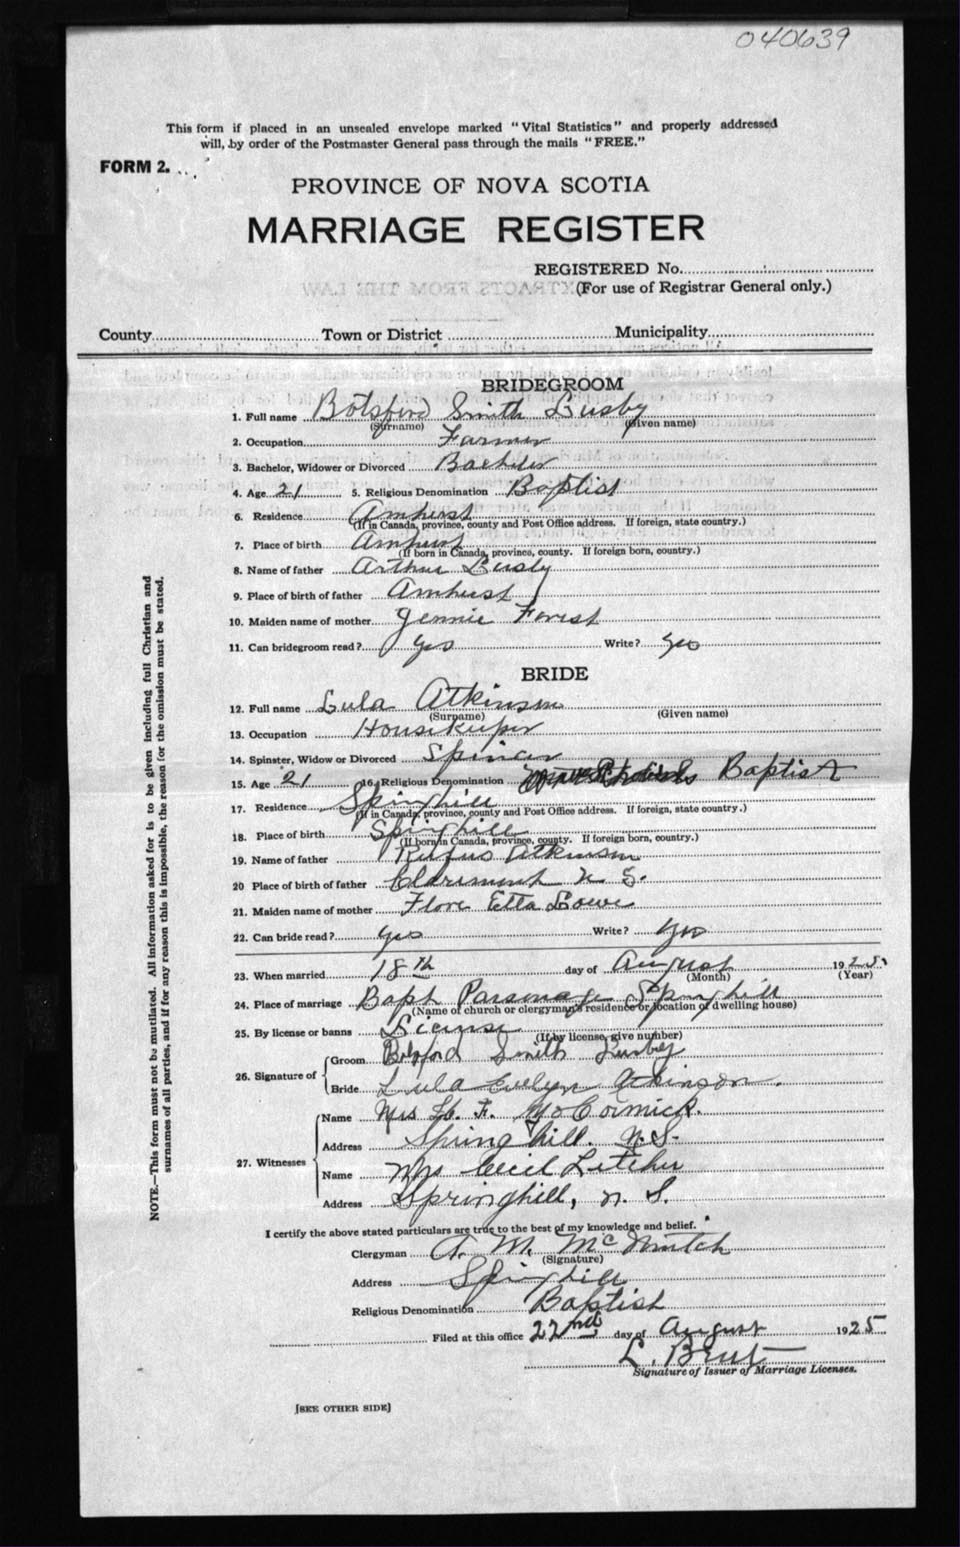 040639
This form if placed in an unsealed envelope marked "Vital Statistics" and properly addressed
will, by order of the Postmaster General pass through the mails "FREE."
FORM 2.
PROVINCE OF NOVA SCOTIA
MARRIAGE REGISTER
REGISTERED No.
(For use of Registrar General only.)
EXTRACTS FROM THE LAW
County Town or District Municipality
BRIDEGROOM
1. Full name Botsford Smith Lusby
(Surname) (Given name)
2. Occupation Farmer
3. Bachelor, Widower or Divorced Bachelor
4. Age 21 5. Religious Denomination Baptist
6. Residence Amherst
(If in Canada, province, county and Post Office address. If foreign, state country.)
7. Place of birth Amherst
(If born in Canada, province, county. If foreign born, country.)
8. Name of father Arthur Lusby
9. Place of birth of father Amherst
10. Maiden name of mother Jennie Forest
11. Can bridegroom read? Yes Write? Yes
BRIDE
12. Full name Lula Atkinson
(Surname) (Given name)
13. Occupation Housekeeper
14. Spinster, Widow or Divorced Spinser
15. Age 21 16. Religious Denomination Baptist
17. Residence Springhill
(If in Canada, province, county and Post Office address. If foreign, state country.)
18. Place of birth Springhill
(If born in Canada, province, county. If foreign born, country.)
19. Name of father Rufus Atkinson
20 Place of birth of father Claremont N S.
21. Maiden name of mother Flora Etta Lowe
22. Can bride read? Yes Write? Yes
23. When married 18th day of August 1925
(Month) (Year)
24. Place of marriage Bapt Parsonage Springhill
(Name of church or clergyman's residence or location of dwelling house)
25. By license or banns License
(If by license, give number)
26. Signature of
Groom Botsford Smith Lusby
Bride Lula Evelyn Atkinson.
27. Witnesses
Name Mrs H. F. McCormick.
Address Spring hill. N.S.
Name Mrs Cecil Letcher
Address Springhill, N. S.
I certify the above stated particulars are true to the best of my knowledge and belief.
Clergyman A. M. McNintch
(Signature)
Address Springhill
Religious Denomination Baptist
Filed at this office 22nd day of August 1925
L. Brent
Signature of Issuer of Marriage Licenses.
[SEE OTHER SIDE]
NOTE.—This form must not be mutilated. All information asked for is to be given including full Christian and
surnames of all parties, and if for any reason this is impossible, the reason for the omission must be stated.